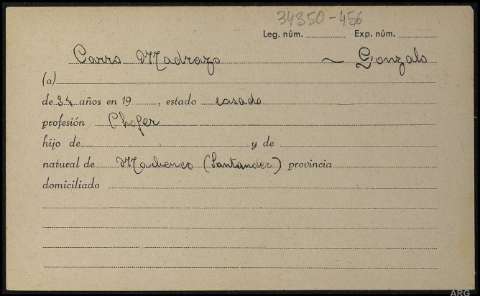 34350-456
Leg. núm. Exp. núm.
Carro Madrazo ~ Gonzalo
(a)
de 34 años en 19 , estado casado
profesión Chofer
hijo de y de
natural de (Santander) provincia
domiciliado
ARG